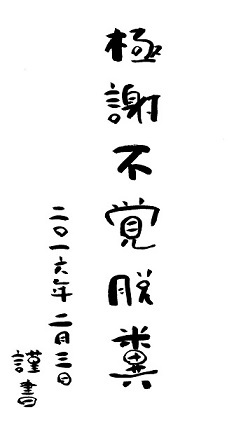 極謝不覚脱糞
二〇一六年 二月三日
謹書